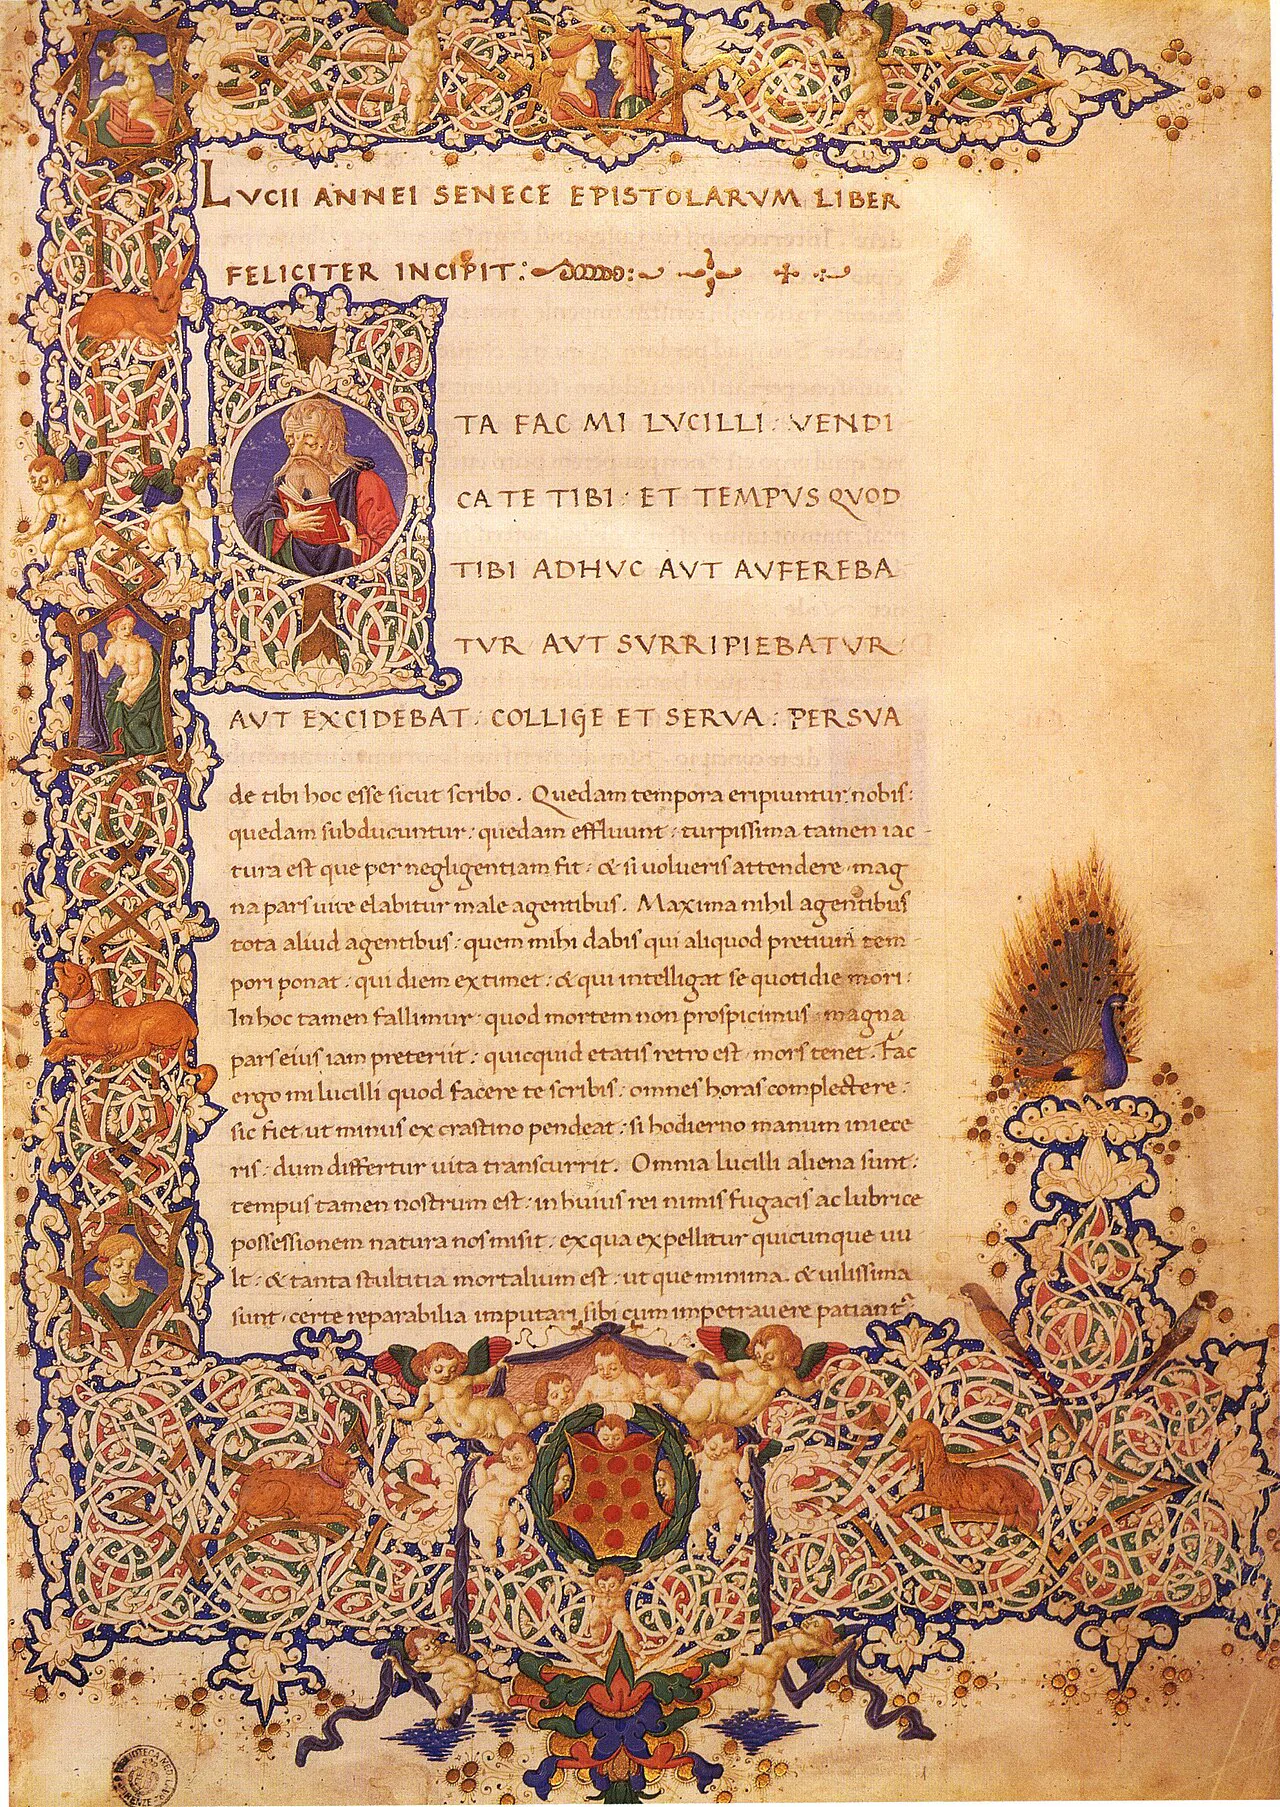 LVCII ANNEI SENECE EPISTOLARVM LIBER
FELICITER INCIPIT:
ITA FAC MI LVCILLI: VENDI
CA TE TIBI: ET TEMPVS QVOD
TIBI ADHVC AVT AVFEREBA
TVR AVT SVRRIPIEBATVR:
AVT EXCIDEBAT: COLLIGE ET SERVA: PERSVA
de tibi hoc esse sicut scribo. Quedam tempora eripiuntur nobis:
quedam subducuntur: quedam effluunt: turpissima tamen iac
tura est que per negligentiam fit: & si uolueris attendere mag
na pars uite elabitur male agentibus. Maxima nihil agentibus
tota aliud agentibus: quem mihi dabis qui aliquod pretium tem
pori ponat: qui diem extimet: & qui intelligat se quotidie mori:
In hoc tamen fallimur quod mortem non prospicimus magna
pars eius iam preteriit: quicquid etatis retro est mors tenet. Fac
ergo mi lucilli quod facere te scribis: omnes horas complectere:
sic fiet ut minus ex crastino pendeat: si hodierno manum iniece
ris: dum differtur uita transcurrit. Omnia lucilli aliena sunt:
tempus tamen nostrum est: in huius rei nimis fugacis ac lubrice
possessionem natura nos misit: ex qua expellitur quicunque uu
lt: & tanta stultitia mortalium est: ut que minima & uilissima
sunt certe reparabilia imputari sibi cum impetrauere patiant